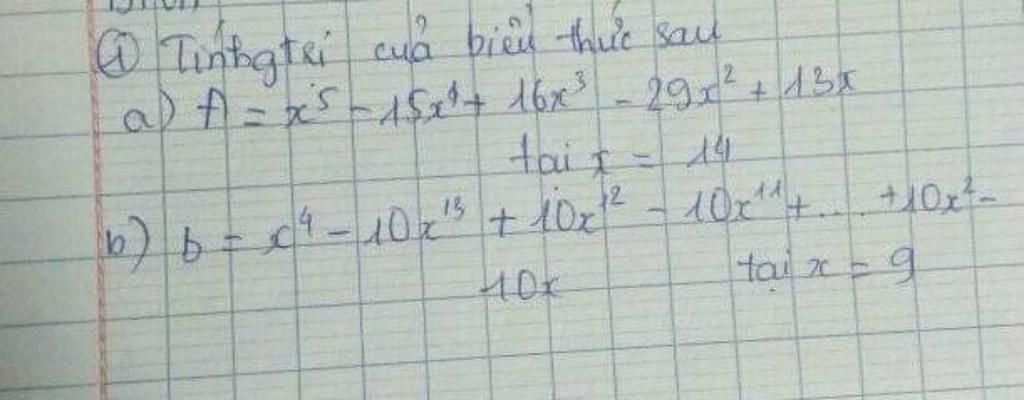 ① Tính gtrị của biểu thức sau
a) A = x⁵ - 15x⁴ + 16x³ - 29x² + 13x
tại x = 14
b) b = x⁴ - 10x¹³ + 10x¹² - 10x¹¹ + ... + 10x² -
10x tại x = 9